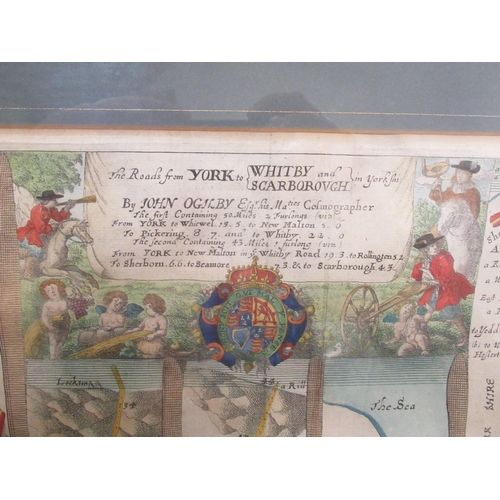 The Roads from YORK to WHITBY and SCARBOROUGH in Yorkshi
By JOHN OGILBY Esqr. his Maties Cosmographer
The first Containing 50 Miles 2 Furlongs (viz)
From YORK to Whitwel 13.5. to New Malton 
To Pickering 8.7. and to Whitby 22.0
The Second Containing 43 Miles 1 furlong (viz)
From YORK to New Malton in ye Whitby Road 19.3. to Rollington 5.2
To Sherborn 6.6. to Seamore 7.3. & to Scarborough 4.3.
Locktong
34
44
a Rill
The Sea
She
A
a R
a
Egl
a
to Yedd
to W
Heslert
SHIRE